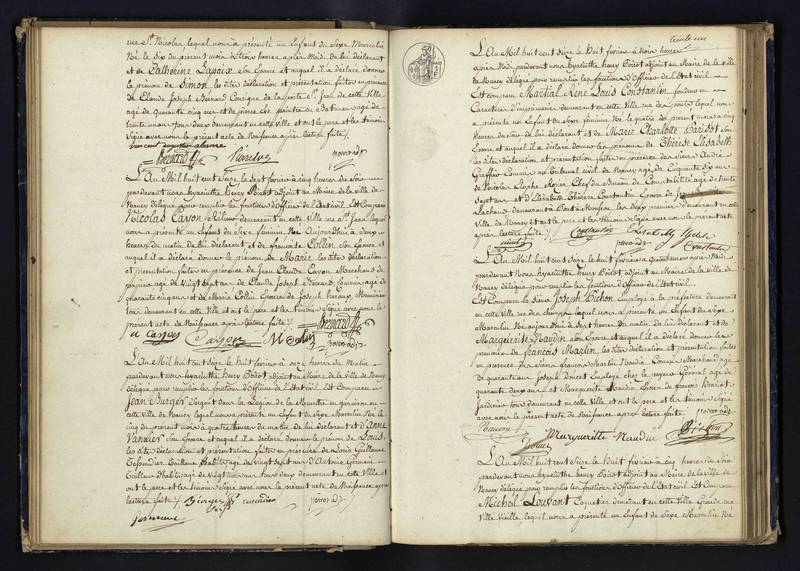 rue St Nicolas, lequel nous à présenté un Enfant du Sexe Masculin
Né le dix du présent mois à trois heures après Midi de lui déclarant
et de Catherine Lapaix son Epouse et auquel il a déclaré donner
le prénom de Simon, les dites déclaration et présentation faites en présence
de Claude Joseph Bernard Concierge de la porte St Jean de cette Ville
agé de quarante cinq ans et de
trente un ans tous deux demeurant en cette Ville et ont le père et les témoins
signé avec nous le présent acte de Naissance après lecture faite /.
Bernard
L'An Mil huit cent Seize le Sept février à cinq heures du Soir
pardevant nous hyacinthe Henry Poirot adjoint au Maire de la ville de
Nancy délégué pour remplir les fonctions d'Officier de l'Etat civil Est Comparu
Nicolas Cayon demeurant en cette Ville rue St Jean, lequel
nous a présenté un Enfant du Sexe féminin Né Aujourd'hui à deux
heures du matin de lui déclarant et de françoise Collin son Epouse et
auquel il a déclaré donner le prénom de Marie les dites déclaration
et présentation faites en présence de Jean Claude Cayon Marchand de
papier agé de Vingt Sept ans de Claude Joseph Bernard, Concierge agé de
quarante cinq ans et de Marie Collin Epouse de Joseph
tous demeurant en cette Ville et ont le père et les témoins Signé avec nous le
présent acte de Naissance après lecture faite /.
Cayon Cayon M Collin Bernard
L'An Mil huit cent Seize le Huit février à onze heures du Matin
pardevant nous hyacinthe Henry Poirot adjoint au Maire de la Ville de Nancy
délégué pour remplir les fonctions d'Officier de l'Etat civil Est Comparu
Jean Burger Sergent dans la Légion de la Meurthe en garnison en
cette Ville de Nancy lequel nous a présenté un Enfant du Sexe Masculin Né le
cinq du présent mois à quatre heures du matin de lui déclarant et d'Anne
Vannier son Epouse et auquel il a déclaré donner le prénom de Louis,
les dites déclaration et présentation faites en présence de Louis Guillaume
tailleur d'habits agé de vingt sept ans d'Antoine Germain
tailleur d'habits agé de vingt ans tous deux demeurant en cette Ville et
ont le père et les témoins Signé avec nous le présent acte de Naissance après
lecture faite /.
trente un
L'An Mil huit cent Seize le Huit février à trois heures
après Midi pardevant nous hyacinthe Henry Poirot adjoint au Maire de la Ville
de Nancy délégué pour remplir les fonctions d'Officier de l'Etat civil
Est comparu Martial René Louis Constantin fondeur en
Caractères d'imprimerie demeurant en cette Ville rue lequel nous
a présenté un Enfant du Sexe féminin Né le quatre du présent mois à cinq
heures du soir de lui déclarant et de Marie Charlotte Paridot son
Epouse et auquel il a déclaré donner les prénoms de Thérèse Elisabeth
les dites déclaration et présentation faites en présence des Sieurs André
Greffier Commis au tribunal civil de Nancy agé de Cinquante dix ans
de Nicolas Chef du Bureau de Comptabilité agé de trente
sept ans et d'Elisabeth Thérèse Constantin Epouse de
Lachaux demeurant à Pont à Mousson les deux premiers demeurant en cette
Ville de Nancy et ont le père et les témoins signé avec nous le présent acte
après lecture faite /.
Constantin
Constantin
L'An Mil huit cent Seize le huit février à quatre heures après Midi
pardevant Nous hyacinthe Henry Poirot adjoint au Maire de la Ville de
Nancy délégué pour remplir les fonctions d'Officier de l'Etat civil
Est Comparu le Sieur Joseph Bichon Employé à la préfecture demeurant
en cette Ville rue des champs, lequel nous a présenté un Enfant du Sexe
Masculin Né aujourd'hui à Sept heures du matin de lui déclarant et de
Marguerite Naudin son Epouse et auquel il a déclaré donner les
prénoms de François Martin les dites déclaration et présentation faites
en présence des Sieurs françois Martin Naudin Commis Marchand agé
de quarante ans Joseph Employé chez le payeur Général agé de
quarante deux ans et Marguerite Naudin Epouse de françois
Jardinier tous demeurant en cette Ville, et ont le père et les témoins Signé
avec nous le présent acte de Naissance après lecture faite /.
Marguerite Naudin Bichon
L'An Mil huit cent Seize le Huit février à cinq heures du Soir
pardevant nous hyacinthe Henry Poirot adjoint au Maire de la ville de
Nancy délégué pour remplir les fonctions d'Officier de l'Etat civil Est Comparu
Michel Louvant Coquetier demeurant en cette Ville Grande rue
Ville Vieille, lequel nous a présenté un Enfant du Sexe Masculin Né